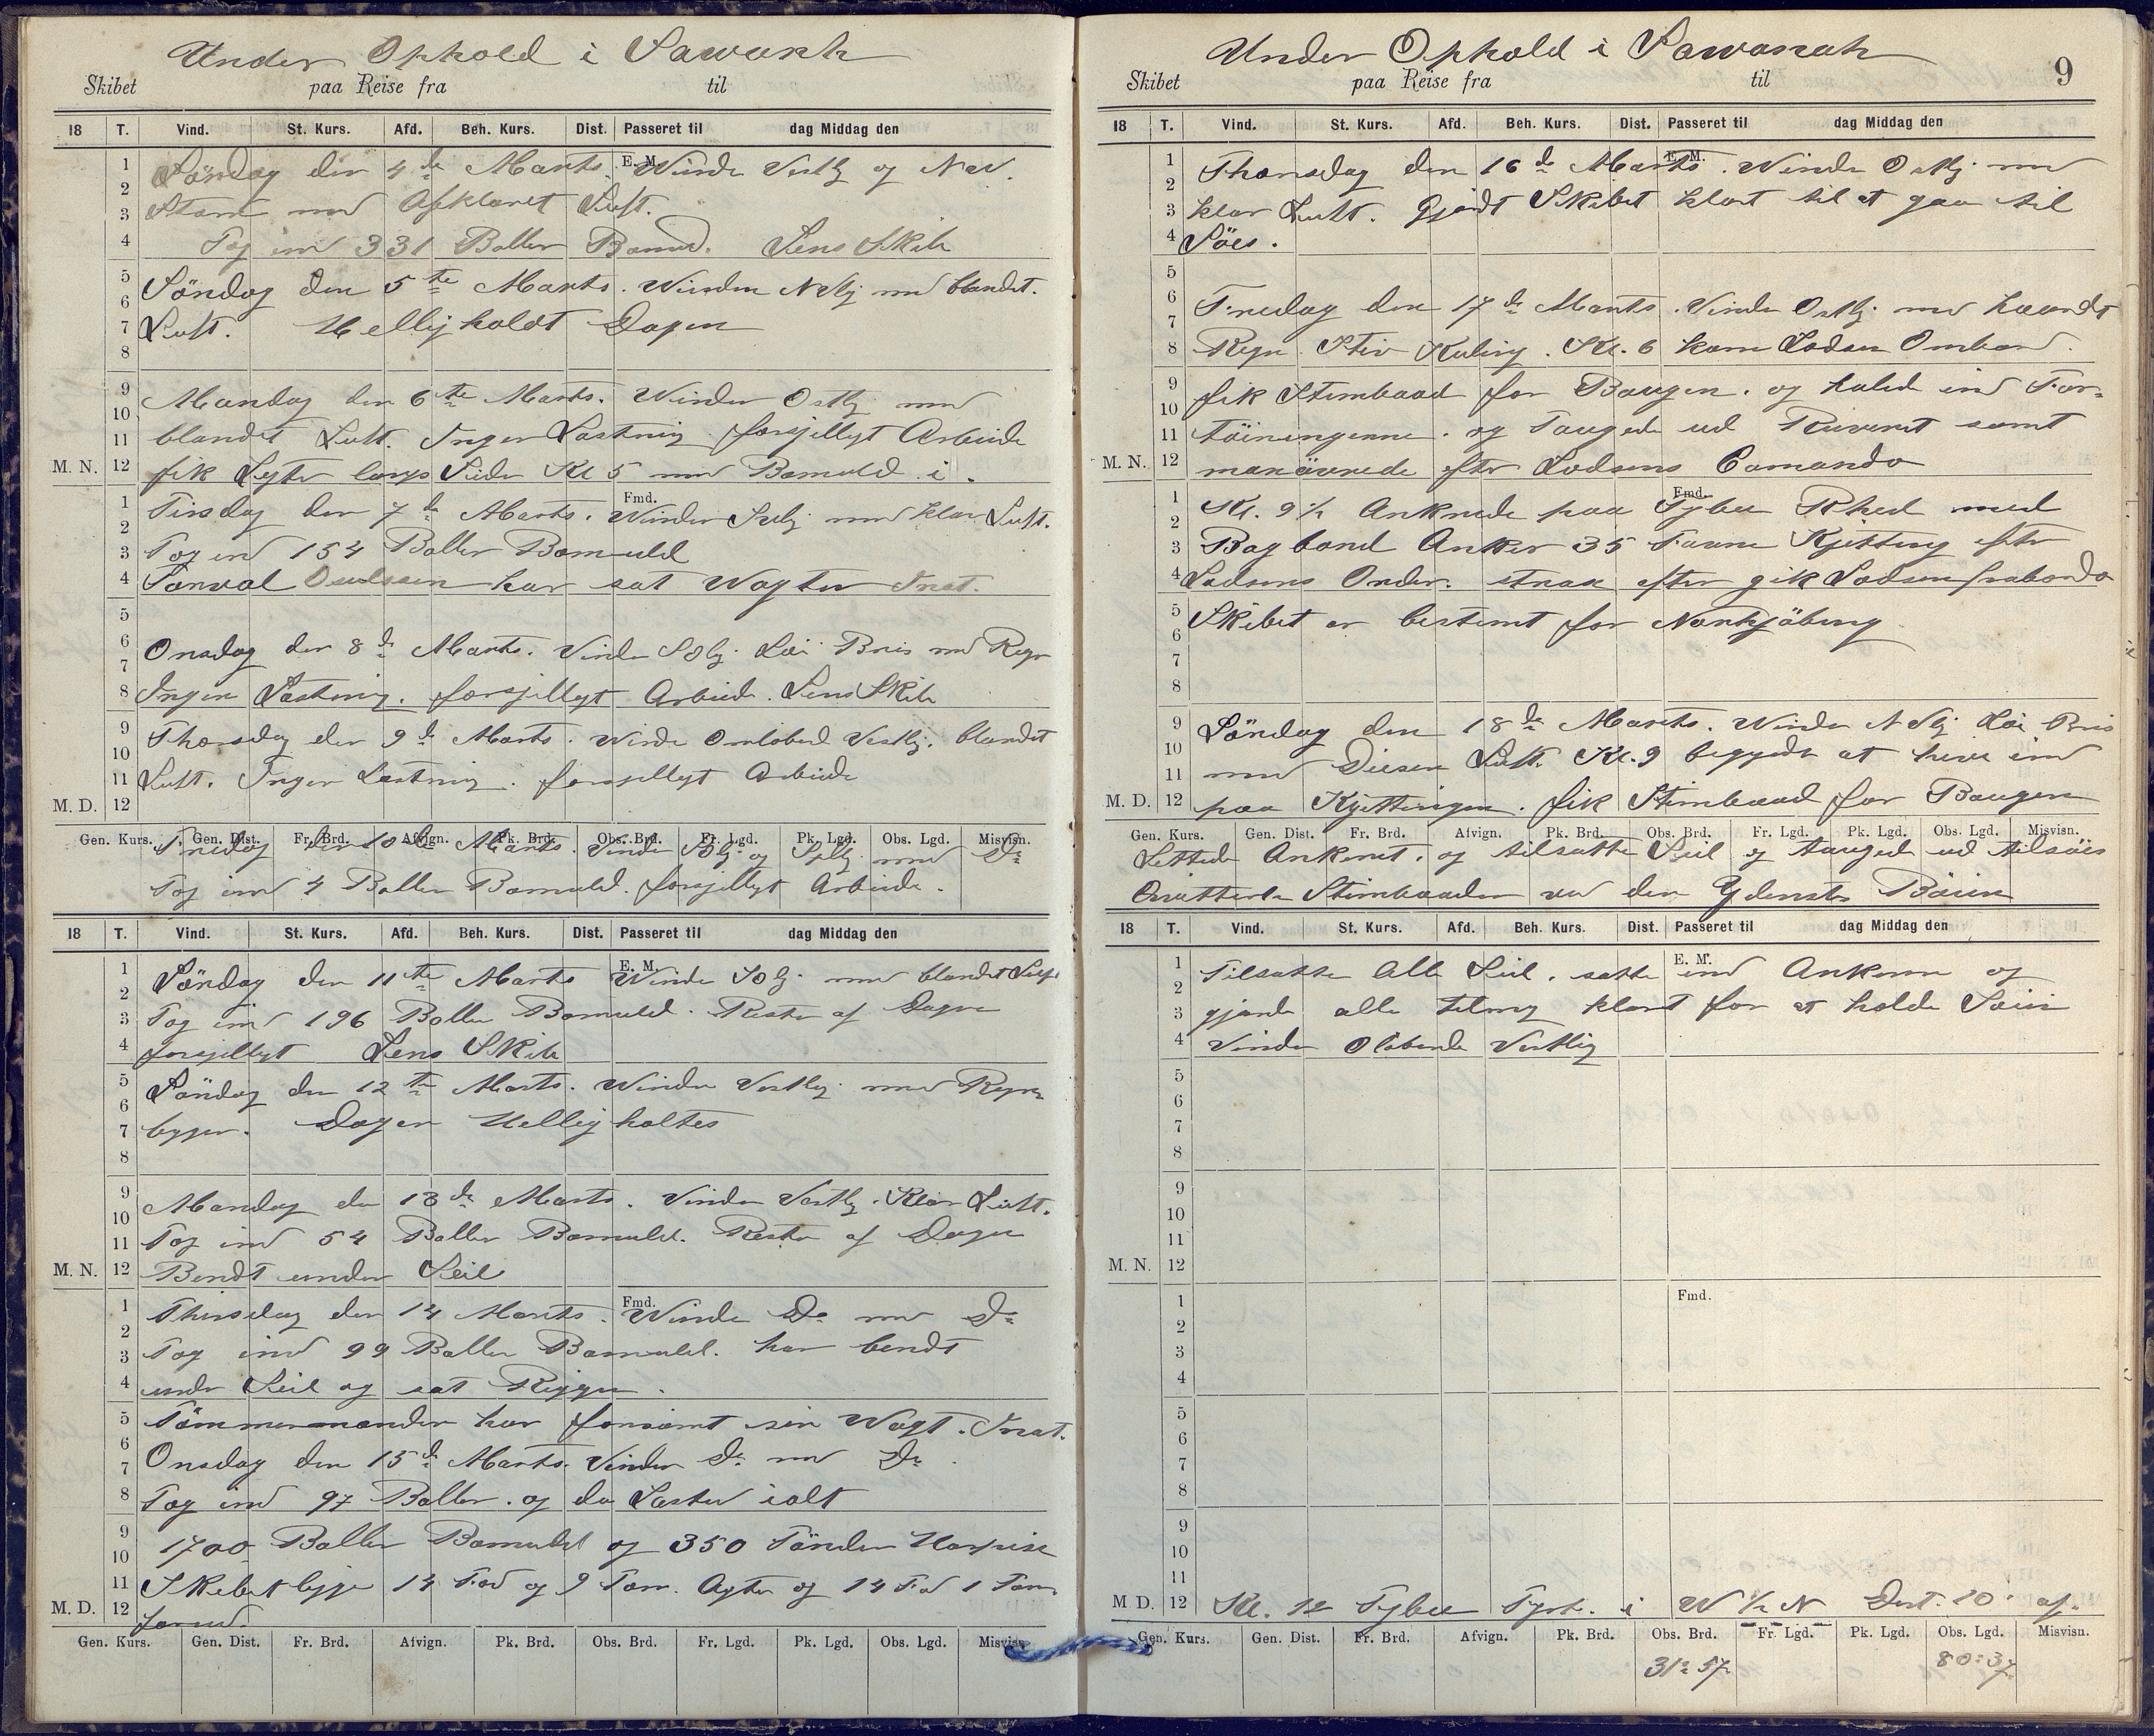 Under Ophold i Sawanh
Skibet paa Reise fra til
18 T. Vind. St. Kurs. Afd. Beh. Kurs. Dist. Passeret til dag Middag den
E. M.
Löndag den 4de Marts. Winde Vestlig og NW.
med Afklaret Luft.
Tog ind 331 Baller Lens Skib
Söndag den 5te Marts. Winden med blandet.
Luft. Helligholdt Dagen
Mandag den 6te Marts. Winden Ostlig med
blandet Luft. Ingen Lastning forsjellygt Arbeide
fik Legter langs Siden Kl 5 med Bomuld i.
M. N.
Fmd.
Tirsdag den 7de Marts. Winden med klar Luft.
Tog ind 154 Baller Bomuld
har sat Wagten
Onsdag den 8de Marts. Vinden Löi Bris med Regn
Ingen Lastning. forsjellygt Arbeide. Lens Skib
Thorsdag den 9de Marts. Winde Omlöbend Vestlig. blandet
Luft. Ingen Lastning. forsjellygt Arbeide
M. D.
Gen. Kurs. Gen. Dist. Fr. Brd. Afvign. Pk. Brd. Obs. Brd. Fr. Lgd. Pk. Lgd. Obs. Lgd. Misvisn.
Fredag den 10de Marts. Vinde og med Do
Tog ind 4 Baller Bomuld. forsjellygt Arbeide.
18 T. Vind. St. Kurs. Afd. Beh. Kurs. Dist. Passeret til dag Middag den
E. M.
Löndag den 11te Marts Winde med blandet Luft
Tog ind 196 Baller Bomuld. Resten af Dagen
forsjellygt Lens Skib
Söndag den 12te Marts. Winden Vestlig med Regn
bygger. Dagen Helligholtes
Mandag den 13de Marts. Vinden Vestlig. Klar Luft.
Tog ind 54 Baller Bomuld. Resten af Dagen
M. N. Bendt under Seil
Fmd.
Thirsdag den 14 Marts. Winde Do med Do
Tog ind 99 Baller Bomuld. har bendt
under Seil og sat Riggen.
Tömmermanden har forsömt sin Wagt.
Onsdag den 15de Marts. Vinden Do med Do.
Tog ind 97 Baller. og da Lastet ialt
1700 Baller Bomuld og 350 Tönder Harpix
Skibet ligger 14 Fod og 9 Tom. Agter og 14 Fod 1 Tom.
M. D. forud.
Gen. Kurs. Gen. Dist. Fr. Brd. Afvign. Pk. Brd. Obs. Brd. Fr. Lgd. Pk. Lgd. Obs. Lgd. Misvisn.
Under Ophold i Sawanah
9
Skibet paa Reise fra til
18 T. Vind. St. Kurs. Afd. Beh. Kurs. Dist. Passeret til dag Middag den
E. M.
Thorsdag den 16de Marts. Winde Ostlig med
klar Luft. Gjordt Skibet klart til at gaa til
Söes.
Fredag den 17de Marts. Vinde Ostlig med
Regn. Stiv Kuling. Kl. 6 kom Lodsen Ombord.
fik Stimbaad for Baugen. og halede ind For-
töiningerne. og Taugede ud Riveret samt
M. N. manövrede efter Lodsens Comando
Fmd.
Kl. 9½ Ankrede paa Tybee Rhed med
Bagbord Anker 35 Favne Kjetting efter
Lodsens Order. strax efter gik Lodsen fraborde
Skibet er bestemt for Norrkjöbing
Löndag den 18de Marts. Winde Löi Bris
med Diesen Luft. Kl. 9 begyndte at hive ind
M. D. paa Kjettingen. fik Stimbaad for Baugen
Gen. Kurs. Gen. Dist. Fr. Brd. Afvign. Pk. Brd. Obs. Brd. Fr. Lgd. Pk. Lgd. Obs. Lgd. Misvisn.
Lettede Ankeret. og tilsatte Seil og tauged ud tilsöis
Stimbaaden ved den Yderste Böien
18 T. Vind. St. Kurs. Afd. Beh. Kurs. Dist. Passeret til dag Middag den
E. M.
Tilsatte Alle Seil. satte ind Ankerne og
gjorde alle klart for at holde Söen
Vinden Olöbende Vestlig
M. N.
Fmd.
M. D. Kl. 12 Tybee Fyrt. i W ½ N Dist. 20' af.
Gen. Kurs. Gen. Dist. Fr. Brd. Afvign. Pk. Brd. Obs. Brd. Fr. Lgd. Pk. Lgd. Obs. Lgd. Misvisn.
31° 57' 80° 37'